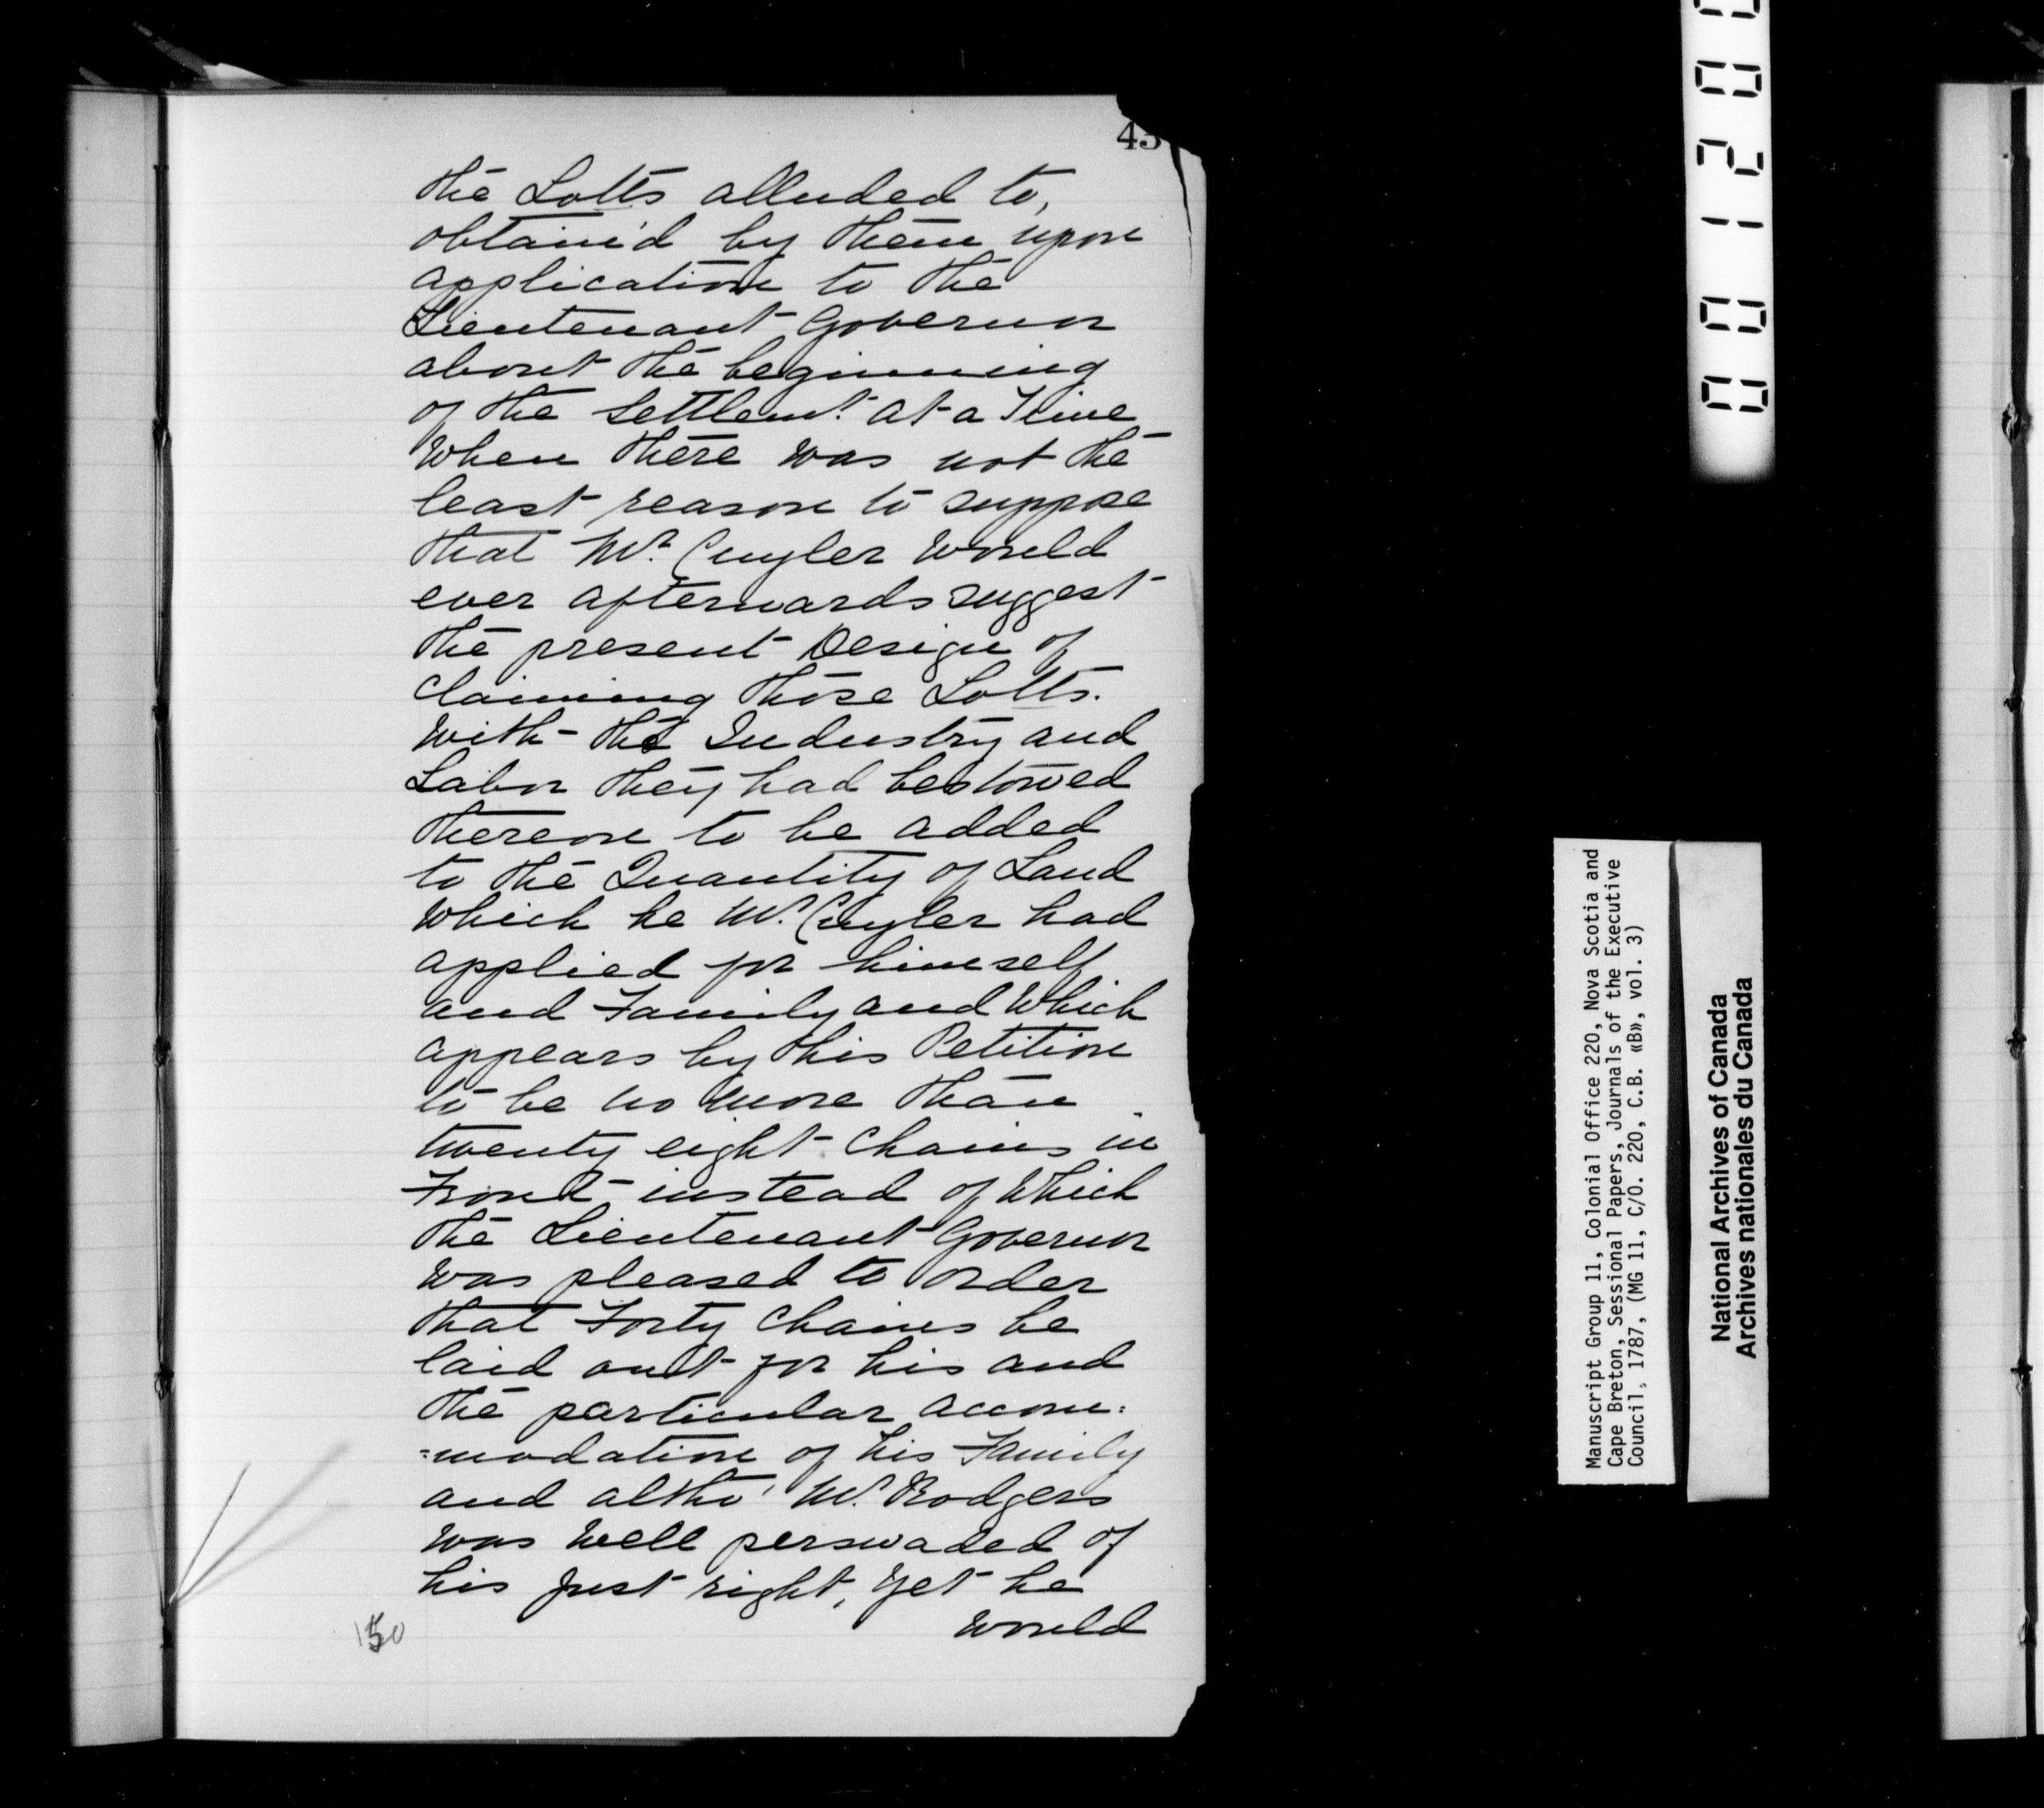 45
the Lotts alluded to,
obtain'd by them upon
application to the
Lieutenant Governor
about the beginning
of the Settlemt. at a Time
When there was not the
least reason to suppose
that Mr. Cuyler would
ever afterwards suggest
the present Design of
claiming those Lotts.
With the Industry and
Labor they had bestowed
thereon to be added
to the Quantity of Land
Which he Mr. Cuyler had
applied for himself
and Family and Which
appears by this Petition
to be no more than
twenty eight Chains in
Front instead of Which
the Lieutenant Governor
was pleased to order
that Forty Chains be
laid out for his and
the particular accom:
=modation of his Family
and altho' Mr. Rodgers
was Well perswaded of
his just right, yet he
would
150
001200
Manuscript Group 11, Colonial Office 220, Nova Scotia and
Cape Breton, Sessional Papers, Journals of the Executive
Council, 1787, (MG 11, C/O. 220, C.B. «B», vol. 3)
National Archives of Canada
Archives nationales du Canada